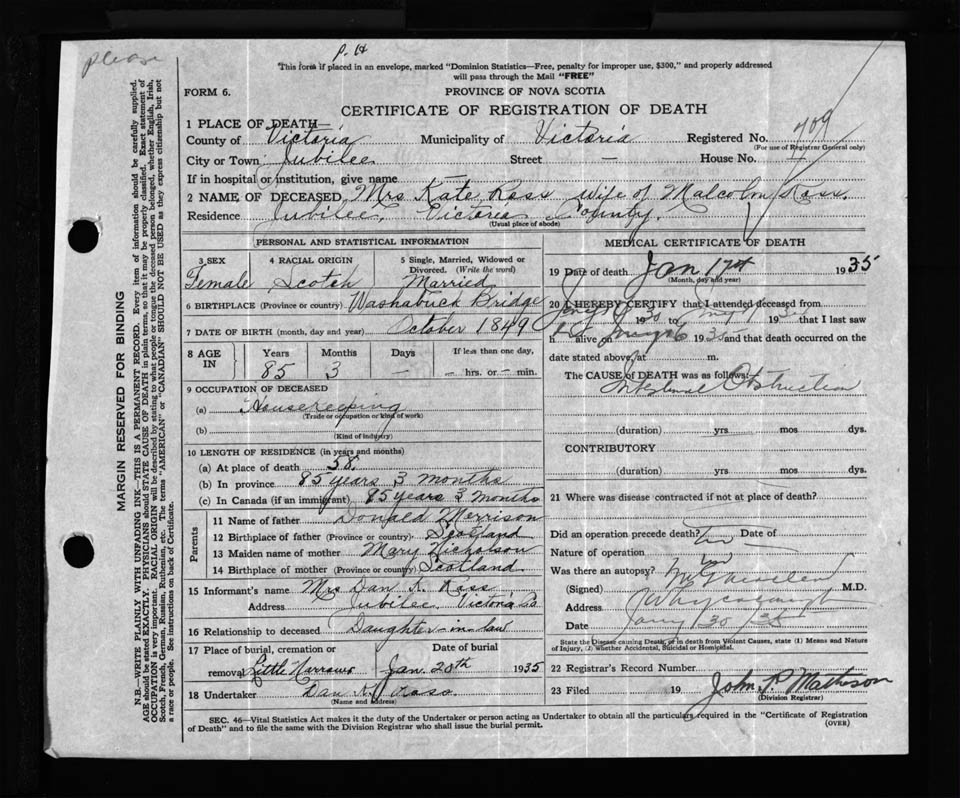 please
P. H
This form if placed in an envelope, marked "Dominion Statistics—Free, penalty for improper use, $300," and properly addressed
will pass through the Mail "FREE"
FORM 6.
PROVINCE OF NOVA SCOTIA
CERTIFICATE OF REGISTRATION OF DEATH
1 PLACE OF DEATH—
County of Victoria Municipality of Victoria Registered No. 409
(For use of Registrar General only)
City or Town Jubilee Street — House No.
If in hospital or institution, give name
2 NAME OF DECEASED Mrs Kate Ross wife of Malcolm Ross.
Residence Jubilee, Victoria County.
(Usual place of abode)
PERSONAL AND STATISTICAL INFORMATION
3 SEX 4 RACIAL ORIGIN 5 Single, Married, Widowed or
Divorced. (Write the word)
Female Scotch Married
6 BIRTHPLACE (Province or country) Washabuck Bridge
7 DATE OF BIRTH (month, day and year) October 1849
8 AGE IN Years Months Days If less than one day,
85 3 — — hrs. or — min.
9 OCCUPATION OF DECEASED
(a) Housekeeping
(Trade or occupation or kind of work)
(b)
(Kind of industry)
10 LENGTH OF RESIDENCE (in years and months)
(a) At place of death 58.
(b) In province 85 years 3 months
(c) In Canada (if an immigrant) 85 years 3 months
Parents
11 Name of father Donald Morrison
12 Birthplace of father (Province or country) Scotland
13 Maiden name of mother Mary Nicholson
14 Birthplace of mother (Province or country) Scotland
15 Informant's name Mrs Dan A. Ross
Address Jubilee Victoria Co
16 Relationship to deceased Daughter-in-law
17 Place of burial, cremation or Date of burial
removal Little Narrows Jan. 20th 1935
18 Undertaker Dan A. Ross.
(Name and address)
MEDICAL CERTIFICATE OF DEATH
19 Date of death Jan 17th 1935
(Month, day and year)
20 I HEREBY CERTIFY that I attended deceased from
19 to 19 that I last saw
h alive on 1935 and that death occurred on the
date stated above, at m.
The CAUSE of DEATH was as follows:
Intestinal Obstruction
(duration) yrs mos dys.
CONTRIBUTORY
(duration) yrs mos dys.
21 Where was disease contracted if not at place of death?
Did an operation precede death? no Date of
Nature of operation
Was there an autopsy? no
(Signed) M.D.
Address Whycocomagh
Date Jany 30/35
State the Disease causing Death, or in death from Violent Causes, state (1) Means and Nature
of Injury, (2) Whether Accidental, Suicidal or Homicidal.
22 Registrar's Record Number
23 Filed 19 John P Matheson
(Division Registrar)
SEC. 46—Vital Statistics Act makes it the duty of the Undertaker or person acting as Undertaker to obtain all the particulars required in the "Certificate of Registration
of Death" and to file the same with the Division Registrar who shall issue the burial permit.
(OVER)
MARGIN RESERVED FOR BINDING
N.B.—WRITE PLAINLY WITH UNFADING INK—THIS IS A PERMANENT RECORD. Every item of information should be carefully supplied.
AGE should be stated EXACTLY. PHYSICIANS should STATE CAUSE OF DEATH in plain terms, so that it may be properly classified. Exact statement of
OCCUPATION is very important. RACIAL ORIGIN will be described by stating to what people or tongue the deceased person belonged, whether English, Irish,
Scotch, French, German, Russian, Ruthenian, etc. The terms "AMERICAN" or "CANADIAN" SHOULD NOT BE USED as they express citizenship but not
a race or people. See instructions on back of Certificate.